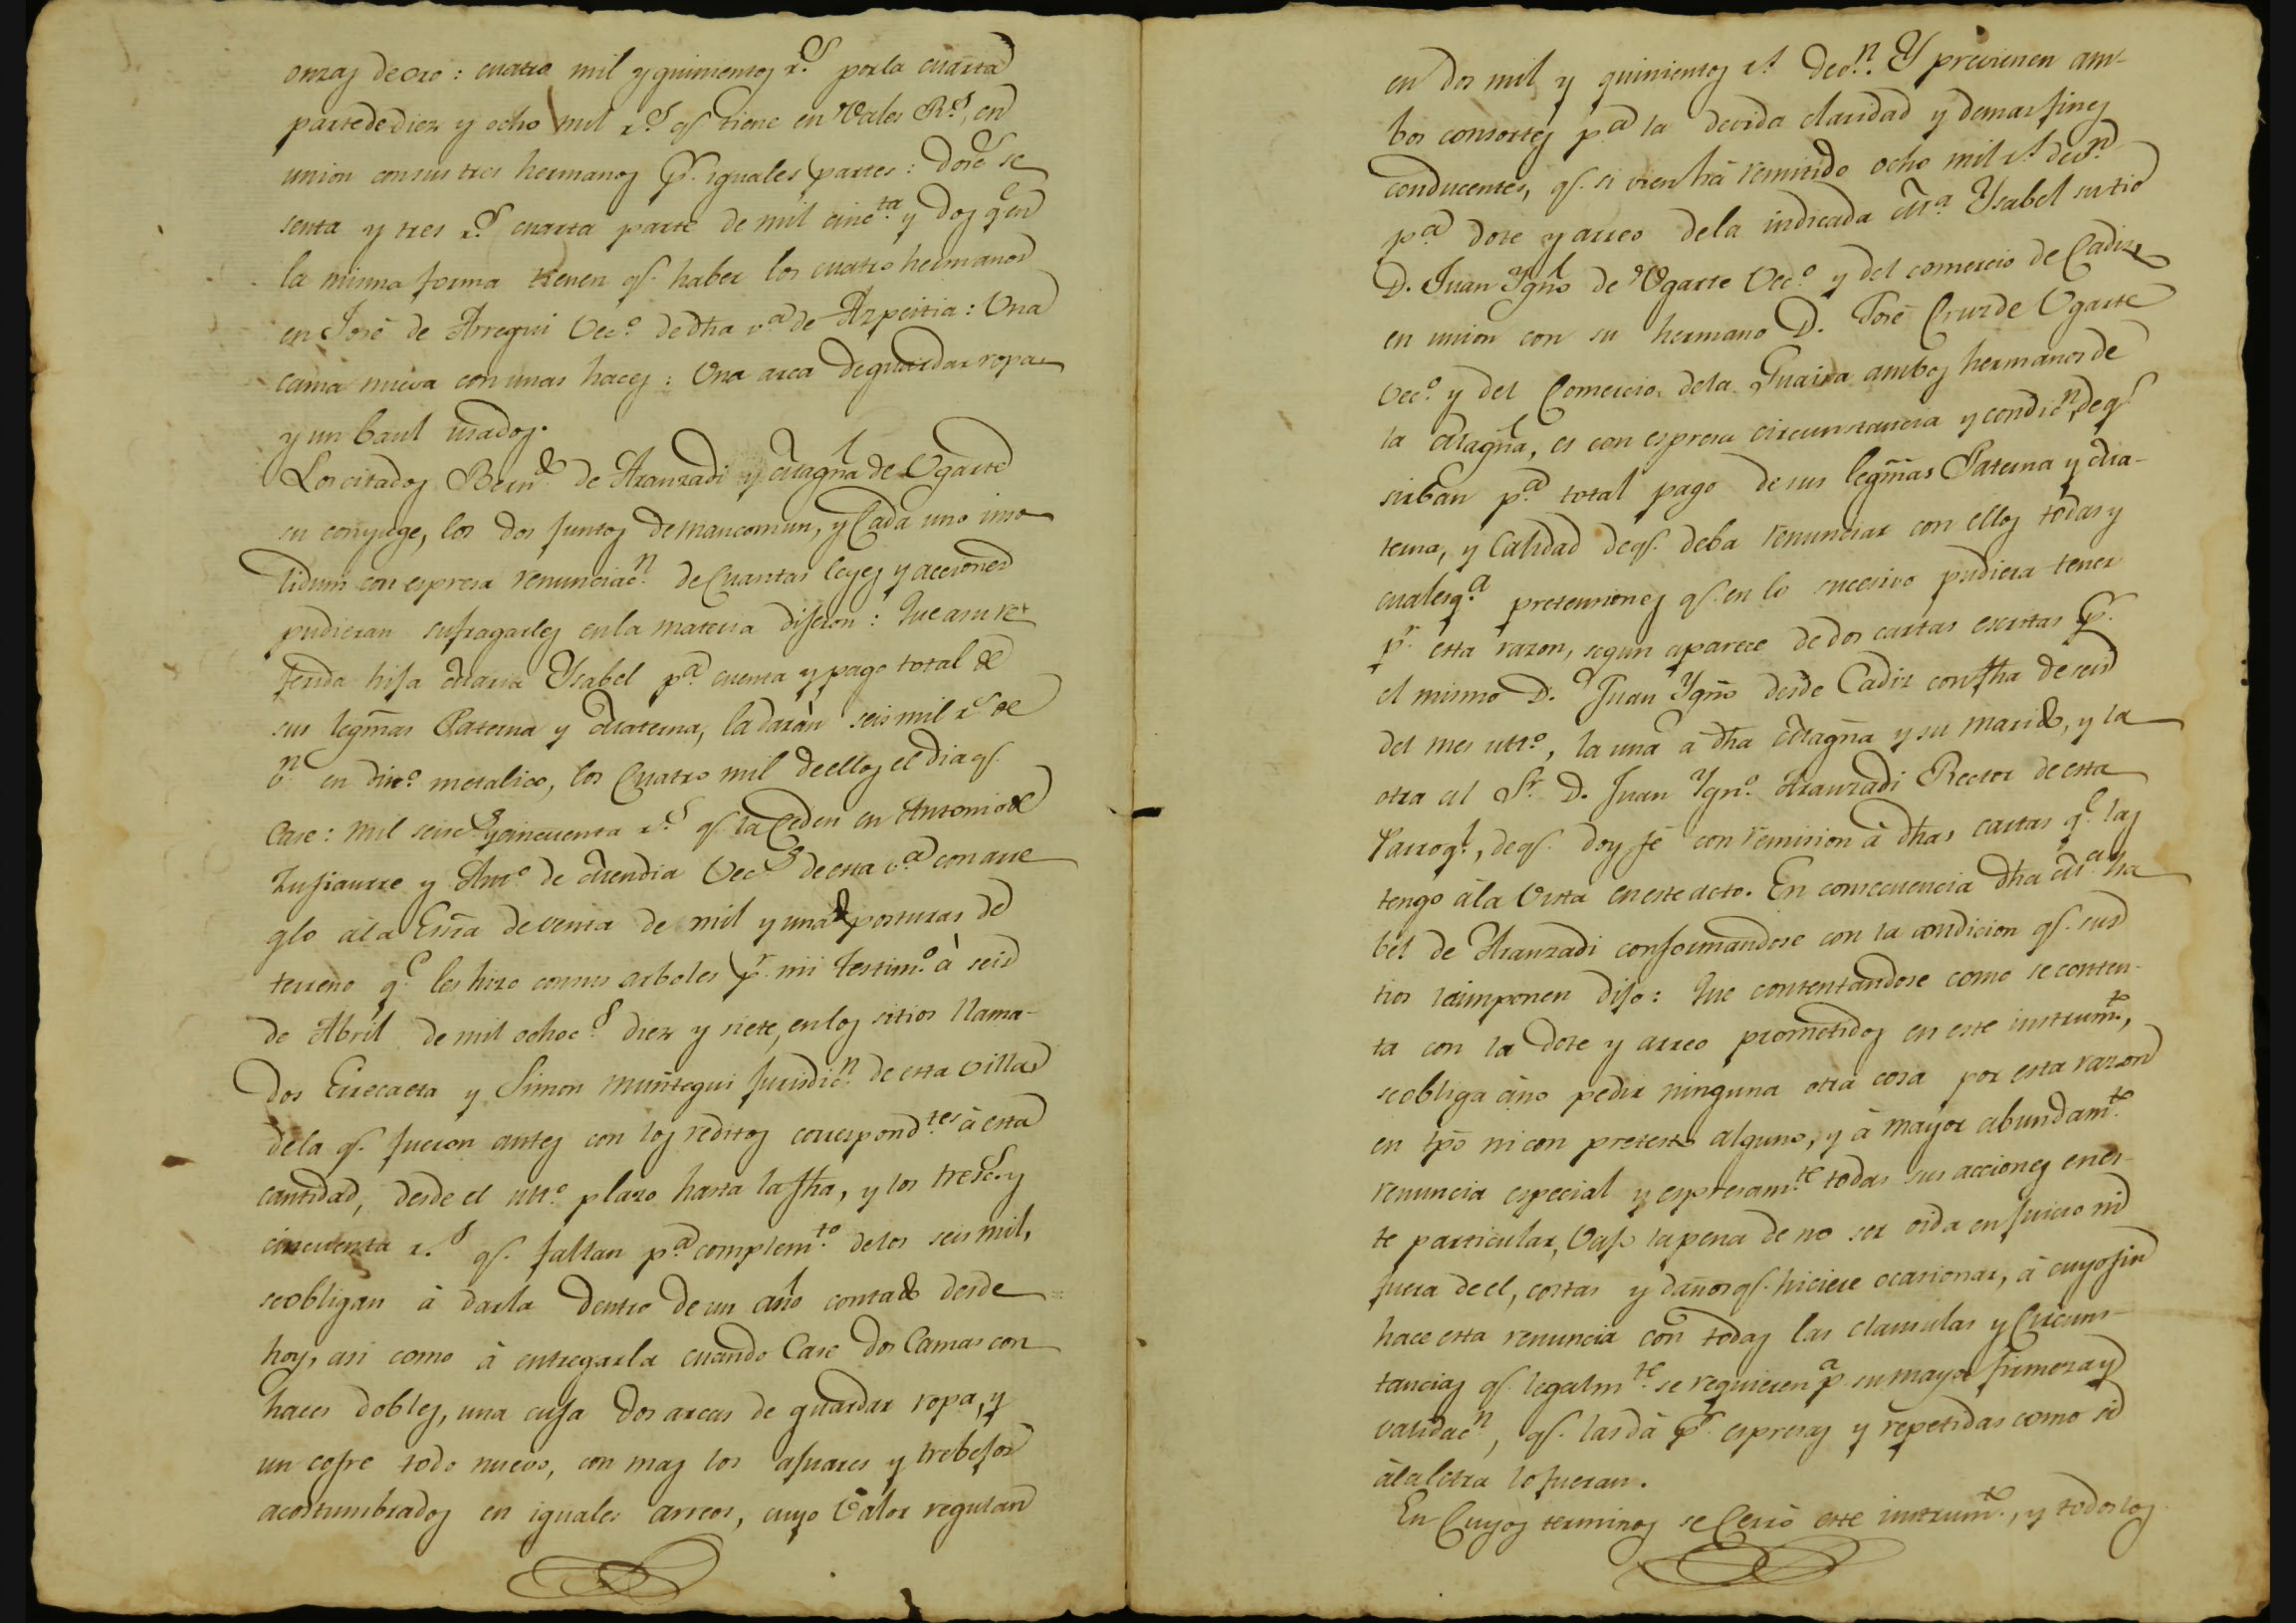 onzas de oro: cuatro mil y quinientos r.s por la cuarta
parte de diez y ocho mil r.s q.e tiene en Vales R.s, en
union con sus tres hermanos p.r iguales partes: dosc.s se
senta y tres r.s cuarta parte de mil cinc.ta y dos q.e en
la misma forma tienen q.e haber los cuatro hermanos
en José de Arregui Vec.o de dha v.a de Azpeitia: Una
cama nueva con unas haces: Una arca de guardar ropa
y un baul usados.
Los citados Bern.do de Aranzadi y Magna de Ugarte
su conyuge, los dos juntos de mancomun, y Cada uno inso
lidum con espresa renunciac.n de Cuantas leyes y acciones
pudieran sufragarles en la materia dijeron: Que a su re
ferida hija Maria Ysabel p.a cuenta y pago total de
sus legmas Paterna y Materna, la darán seis mil r.s de
v.n en din.o metalico, los Cuatro mil de ellos el dia q.e
Case: mil seisc.s y cincuenta r.s q.e la Ceden en Antonio de
Zufiaurre y Ant.o de Mendia Vec.s de esta v.a con arre
glo a la Escra de venta de mil y una posturas de
terreno q.e les hizo con sus arboles p.r mi testim.o à seis
de Abril de mil ochoc.s diez y siete, en los sitios llama-
dos Errecaeta y Simon muñtegui Jurisdic.n de esta villa
de la q.e fueron antes con los reditos correspond.tes à esta
cantidad, desde el ult.o plazo hasta la fha, y los tresc.s y
cincuenta r.s q.e faltan p.a complem.to de los seis mil,
se obligan à darla dentro de un año contado desde
hoy, asi como à entregarla cuando Case dos Camas con
haces dobles, una cuja dos arcas de guardar ropa, y
un cofre todo nuevo, con mas los ajuares y trebejos
acostumbrados en iguales arreos, cuyo Valor regulan
en dos mil y quinientos r.s de v.n. Y previenen am-
bos consortes p.a la devida claridad y demas fines
conducentes, q.e si vien há remitido ocho mil r.s de v.n
p.a dote y arreo de la indicada M.a Ysabel su tio
D. Juan Ygn.o de Ugarte Vec.o y del comercio de Cadiz
en union con su hermano D. José Cruz de Ugarte
Vec.o y del Comercio de la Guaira ambos hermanos de
la Magna, es con espresa circunstancia y condic.n de q.e
sirban p.a total pago de sus legmas Paterna y Ma-
terna, y Calidad de q.e deba renunciar con ellos todas y
cualesq.a pretensiones q.e en lo sucesivo pudiera tener
p.r esta razon, segun aparece de dos cartas escritas p.r
el mismo D. Juan Ygn.o desde Cadiz con fha de seis
del mes ult.o, la una á dha Magna y su marido, y la
otra al S.r D. Juan Ygn.o Aranzadi Rector de esta
Parroq.l, de q.e doy fé con remision à dhas cartas q.e las
tengo à la Vista en este acto. En consecuencia dha M.a Ysa
bel de Aranzadi conformandose con la condicion q.e sus
tios le imponen dijo: Que contentandose como se conten-
ta con la dote y arreo prometidos en este instrum.to,
se obliga à no pedir ninguna otra cosa por esta razon
en tpo ni con pretesto alguno, y à mayor abundam.to
renuncia especial y espresam.te todas sus acciones en es-
te particular, vajo la pena de no ser oida en juicio ni
fuera de el, costas y daños q.e hiciere ocasionar, à cuyo fin
hace esta renuncia con todas las clausulas y Circuns-
tancias q.e legalm.te se requieren p.a su mayor firmeza y
validac.n, q.e las dà p.r espresas y repetidas como si
à la letra lo fueran.
En Cuyos terminos se Cerró este instrum.to, y todos los